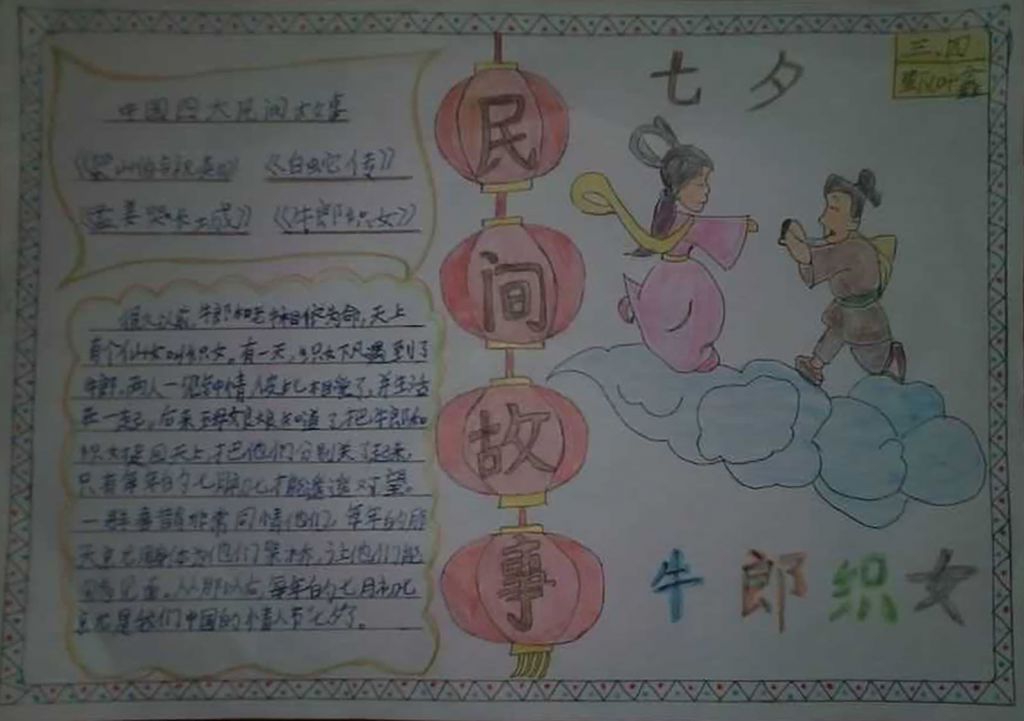 中国四大民间故事
《梁山伯与祝英台》 《白蛇传》
《孟姜哭长城》 《牛郎织女》
很久以前，牛郎和老牛相依为命，天上
有个仙女叫织女。有一天，织女下凡遇到了
牛郎，两人一见钟情，彼此相爱了，并生活
在一起，后来王母娘娘知道了，把牛郎和
织女捉回天上，把他们分别关了起来，
只有每年的七月初七才能遥遥对望。
一群喜鹊非常同情他们，每年的
天
从那以后，每年的七月初七
就是我们中国的情人节“七夕”。
民
间
故
事
七夕
三.四
牛郎织女